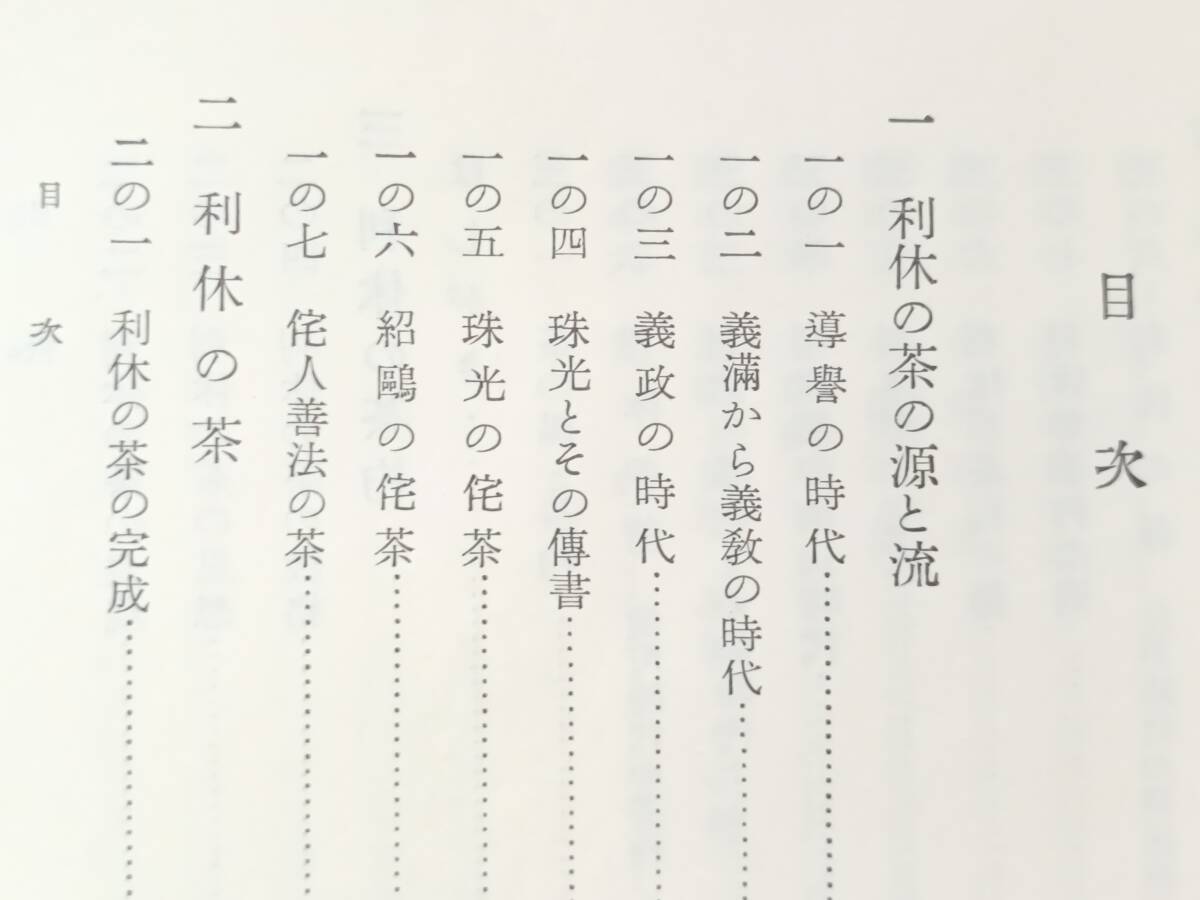 目次
一 利休の茶の源と流
一の一 導譽の時代……………
一の二 義滿から義教の時代……………
一の三 義政の時代……………
一の四 珠光とその傳書……………
一の五 珠光の侘茶……………
一の六 紹鷗の侘茶……………
一の七 侘人善法の茶……………
二 利休の茶
二の一 利休の茶の完成……………
目次